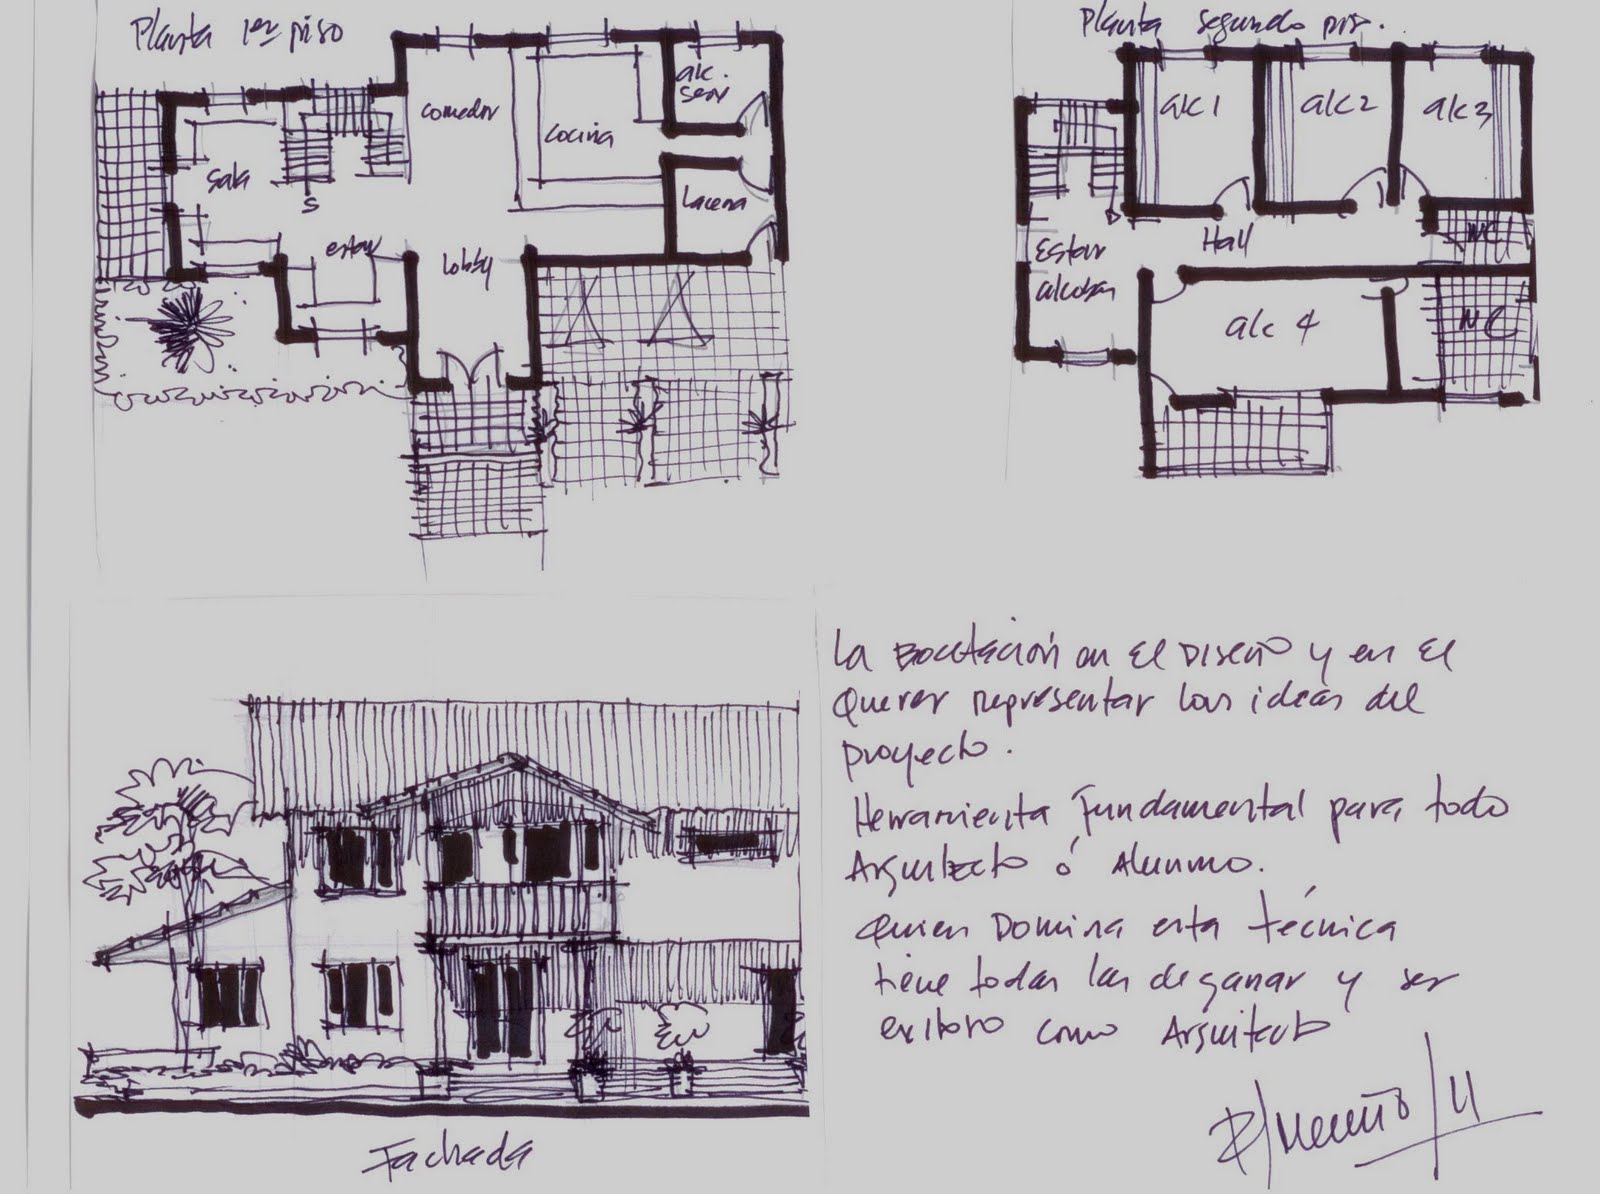 Planta 1er piso
comedor
cocina
alc. serv
sala
S
lacena
estar
lobby
Planta segundo piso.
alc 1
alc 2
alc 3
Hall
WC
Estar
alcobas
alc 4
WC
La Bocetación en El Diseño y en El
Querer representar las ideas del
proyecto.
Herramienta Fundamental para todo
Arquitecto ó Alumno.
Quien Domina esta técnica
tiene todas las de ganar y ser
exitoso como Arquitecto
Fachada